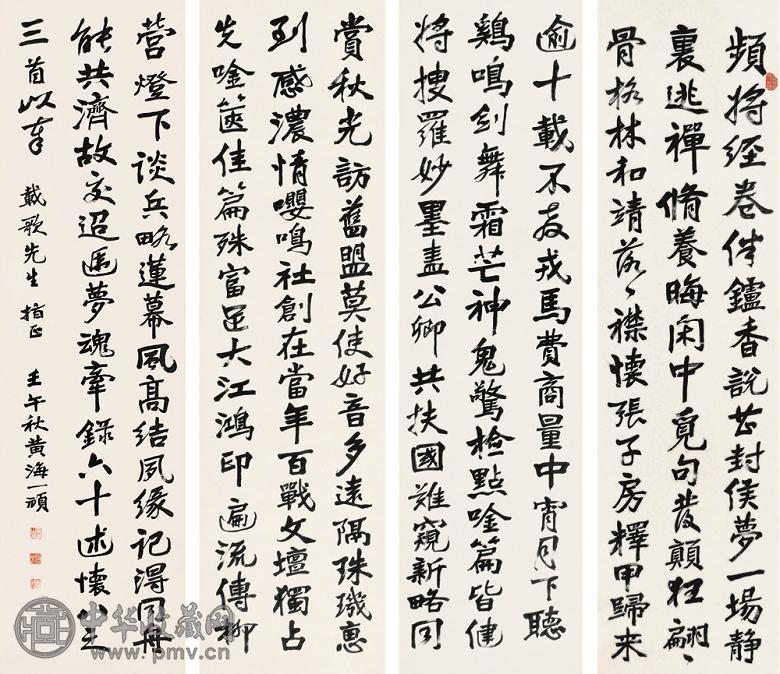 頻將經卷伴鑪香說甚封侯夢一場靜
裏逃禪脩養晦閑中覓句發顛狂翩〻
骨格林和靖落〻襟懷張子房釋甲歸来
逾十載不夜戎馬費商量中宵月下聽
鷄鳴剑舞霜芒神鬼驚檢點唫篇皆健
将搜羅妙墨盡公卿共扶國難窺新略同
賞秋光訪舊盟莫使好音多遠隔珠璣惠
到感濃情嚶鳴社創在當年百戰文壇獨占
先唫箧佳篇殊富足大江鴻印遍流傳柳
营燈下谈兵略蓮幕風髙结夙缘记得同舟
能共濟故交迢遞夢魂牽錄六十述懷
三首以奉 載歌先生 指正 壬午秋黄海一頑
中华收藏网
www.pmv.cn